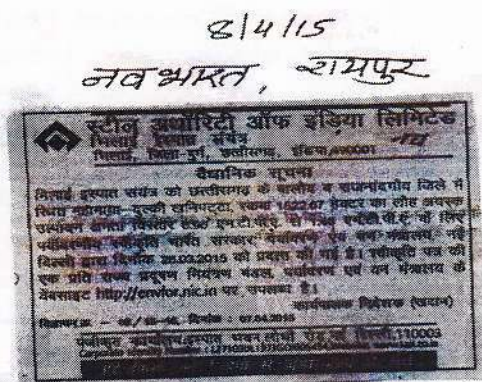 8/4/15
नवभारत, रायपुर
स्टील अथॉरिटी ऑफ इंडिया लिमिटेड
भिलाई इस्पात संयंत्र
भिलाई, जिला-दुर्ग, छत्तीसगढ़, इंडिया, 490001
वैधानिक सूचना
भिलाई इस्पात संयंत्र को छत्तीसगढ़ के बालोद व राजनांदगांव जिले में
स्थित महामाया-दुल्की खनिपट्टा, रकबा 1522.67 हेक्टर का लौह अयस्क
उत्पादन क्षमता विस्तार एम.टी.पी.ए. से के लिए
पर्यावरणीय स्वीकृति भारत सरकार, पर्यावरण एवं वन मंत्रालय, नई
दिल्ली द्वारा दिनांक 26.03.2015 को प्रदान की गई है। स्वीकृति पत्र की
एक प्रति राज्य प्रदूषण नियंत्रण मंडल, पर्यावरण एवं वन मंत्रालय के
वेबसाइट http://envfor.nic.in पर उपलब्ध है।
कार्यपालक निदेशक (खदान)
दिनांक : 07.04.2015
पंजीकृत कार्यालय:इस्पात भवन,लोधी रोड,नई दिल्ली,110003